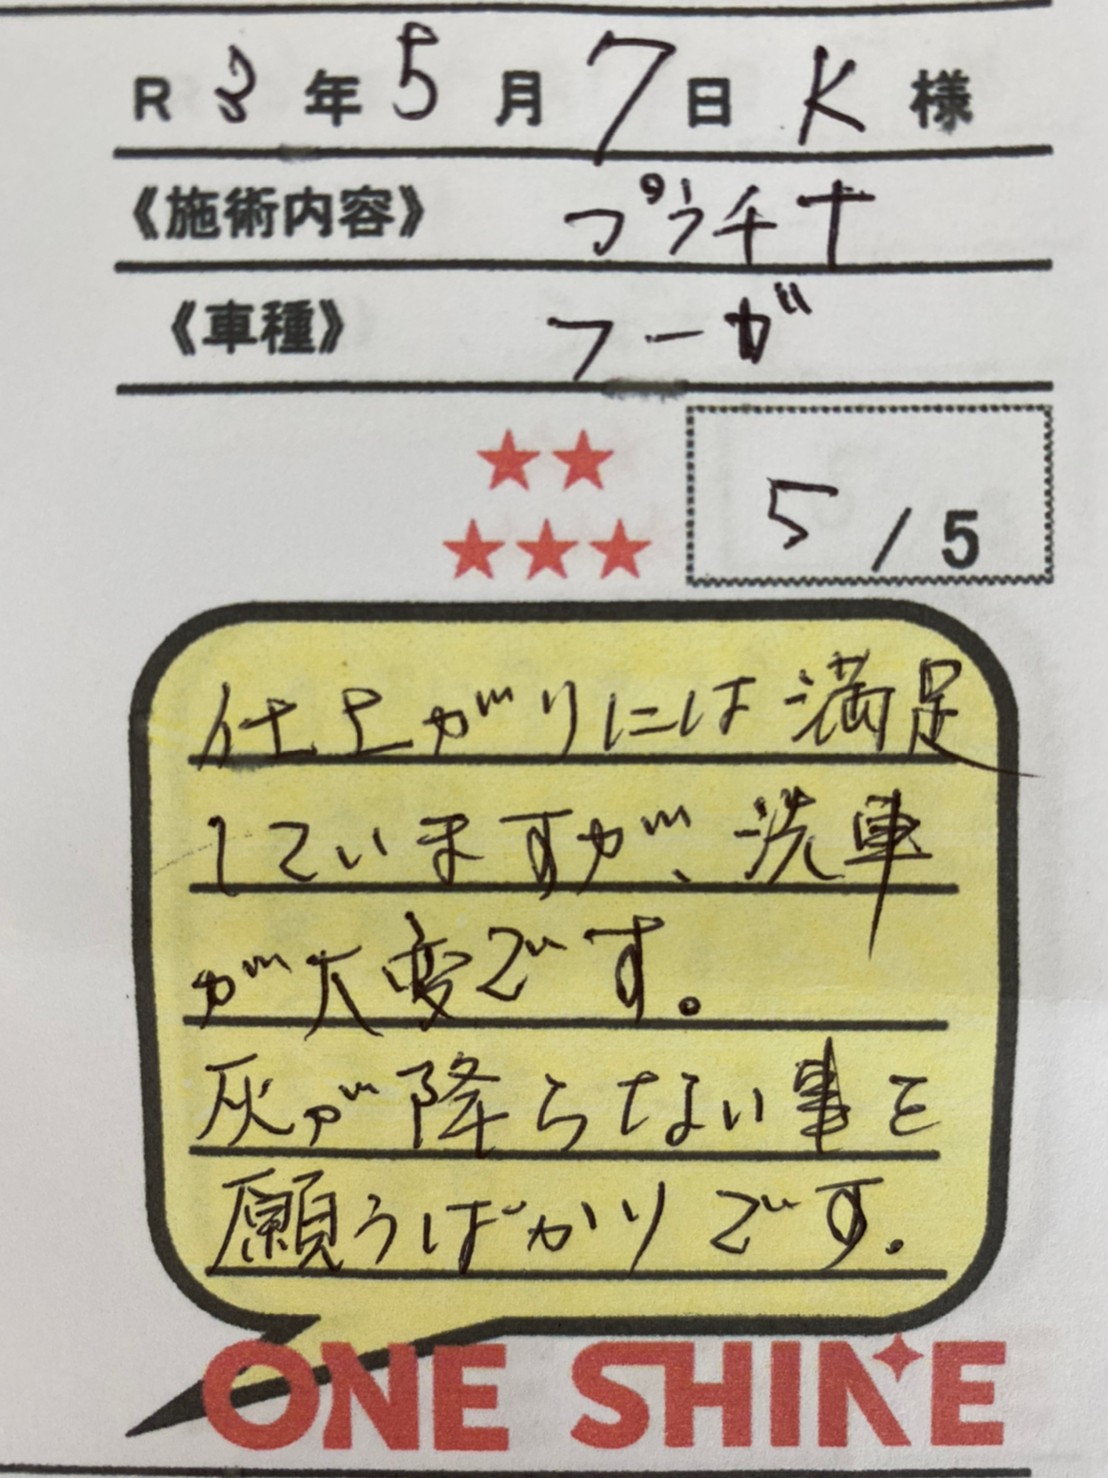 R 3年 5月 7日 K 様
《施術内容》 プラチナ
《車種》 フーガ
★★
★★★
5 / 5
仕上がりには満足
していますが、洗車
が大変です。
灰が降らない事を
願うばかりです.
ONE SHINE